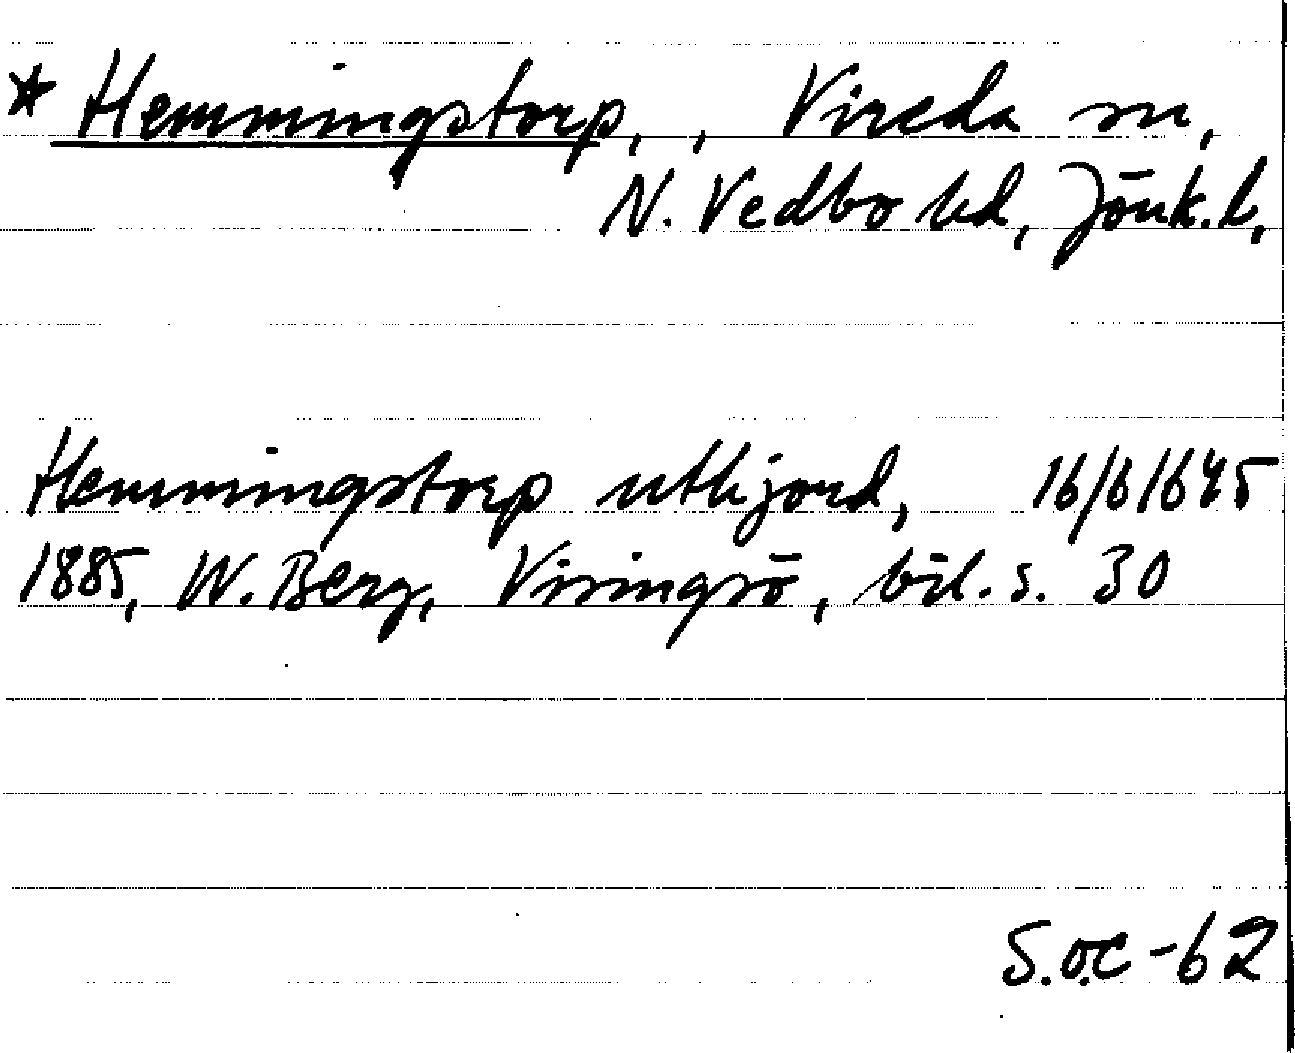 * Hemmingstorp, , Vireda sn,
N. Vedbo hd, Jönk. l,
Hemmingstorp uthjord, 16/6 1645
1885, W. Berg, Visingsö, bil. s. 30
S.O.C -62